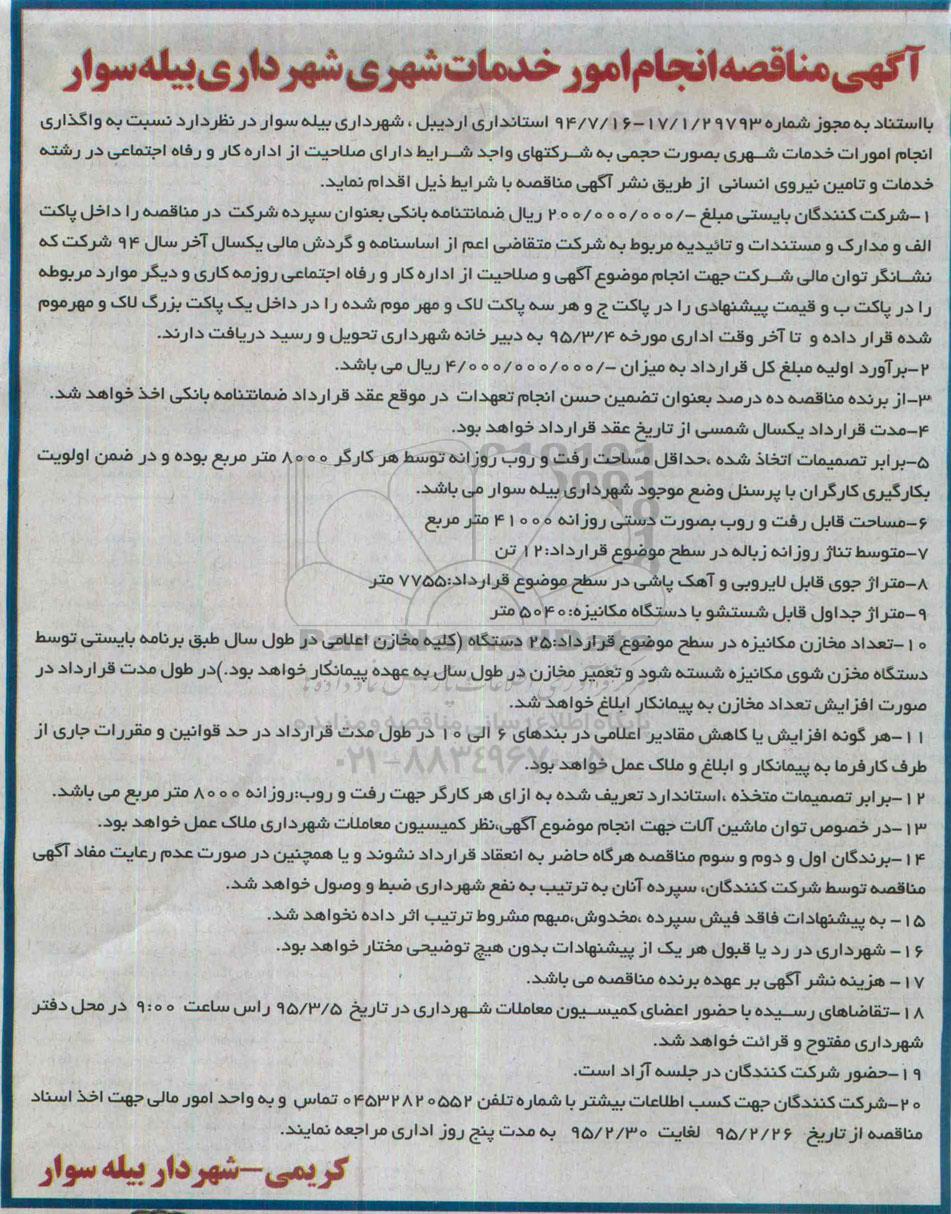 آگهی مناقصه انجام امور خدمات شهری شهرداری بیله سوار
بااستناد به مجوز شماره ۱۷/۱/۲۹۷۹۳-۹۴/۷/۱۶ استانداری اردبیل ، شهرداری بیله سوار در نظردارد نسبت به واگذاری
انجام امورات خدمات شهری بصورت حجمی به شرکتهای واجد شرایط دارای صلاحیت از اداره کار و رفاه اجتماعی در رشته
خدمات و تامین نیروی انسانی از طریق نشر آگهی مناقصه با شرایط ذیل اقدام نماید.
۱-شرکت کنندگان بایستی مبلغ -/۲۰۰/۰۰۰/۰۰۰ ریال ضمانتنامه بانکی بعنوان سپرده شرکت در مناقصه را داخل پاکت
الف و مدارک و مستندات و تائیدیه مربوط به شرکت متقاضی اعم از اساسنامه و گردش مالی یکسال آخر سال ۹۴ شرکت که
نشانگر توان مالی شرکت جهت انجام موضوع آگهی و صلاحیت از اداره کار و رفاه اجتماعی روزمه کاری و دیگر موارد مربوطه
را در پاکت ب و قیمت پیشنهادی را در پاکت ج و هر سه پاکت لاک و مهر موم شده را در داخل یک پاکت بزرگ لاک و مهرموم
شده قرار داده و تا آخر وقت اداری مورخه ۹۵/۳/۴ به دبیر خانه شهرداری تحویل و رسید دریافت دارند.
۲-برآورد اولیه مبلغ کل قرارداد به میزان -/۴/۰۰۰/۰۰۰/۰۰۰ ریال می باشد.
۳-از برنده مناقصه ده درصد بعنوان تضمین حسن انجام تعهدات در موقع عقد قرارداد ضمانتنامه بانکی اخذ خواهد شد.
۴-مدت قرارداد یکسال شمسی از تاریخ عقد قرارداد خواهد بود.
۵-برابر تصمیمات اتخاذ شده ،حداقل مساحت رفت و روب روزانه توسط هر کارگر ۸۰۰۰ متر مربع بوده و در ضمن اولویت
بکارگیری کارگران با پرسنل وضع موجود شهرداری بیله سوار می باشد.
۶-مساحت قابل رفت و روب بصورت دستی روزانه ۴۱۰۰۰ متر مربع
۷-متوسط تناژ روزانه زباله در سطح موضوع قرارداد:۱۲ تن
۸-متراژ جوی قابل لایروبی و آهک پاشی در سطح موضوع قرارداد:۷۷۵۵ متر
۹-متراژ جداول قابل شستشو با دستگاه مکانیزه:۵۰۴۰ متر
۱۰-تعداد مخازن مکانیزه در سطح موضوع قرارداد:۲۵ دستگاه (کلیه مخازن اعلامی در طول سال طبق برنامه بایستی توسط
دستگاه مخزن شوی مکانیزه شسته شود و تعمیر مخازن در طول سال به عهده پیمانکار خواهد بود.)در طول مدت قرارداد در
صورت افزایش تعداد مخازن به پیمانکار ابلاغ خواهد شد.
پایگاه اطلاع رسانی مناقصه و مزایده
۱۱-هر گونه افزایش یا کاهش مقادیر اعلامی در بندهای ۶ الی ۱۰ در طول مدت قرارداد در حد قوانین و مقررات جاری از
طرف کارفرما به پیمانکار و ابلاغ و ملاک عمل خواهد بود.
۰۲۱-۸۸۳۴۹۶۷۰-۵
۱۲-برابر تصمیمات متخذه ،استاندارد تعریف شده به ازای هر کارگر جهت رفت و روب:روزانه ۸۰۰۰ متر مربع می باشد.
۱۳-در خصوص توان ماشین آلات جهت انجام موضوع آگهی،نظر کمیسیون معاملات شهرداری ملاک عمل خواهد بود.
۱۴-برندگان اول و دوم و سوم مناقصه هرگاه حاضر به انعقاد قرارداد نشوند و یا همچنین در صورت عدم رعایت مفاد آگهی
مناقصه توسط شرکت کنندگان، سپرده آنان به ترتیب به نفع شهرداری ضبط و وصول خواهد شد.
۱۵- به پیشنهادات فاقد فیش سپرده ،مخدوش،مبهم مشروط ترتیب اثر داده نخواهد شد.
۱۶- شهرداری در رد یا قبول هر یک از پیشنهادات بدون هیچ توضیحی مختار خواهد بود.
۱۷- هزینه نشر آگهی بر عهده برنده مناقصه می باشد.
۱۸-تقاضاهای رسیده با حضور اعضای کمیسیون معاملات شهرداری در تاریخ ۹۵/۳/۵ راس ساعت ۹:۰۰ در محل دفتر
شهرداری مفتوح و قرائت خواهد شد.
۱۹-حضور شرکت کنندگان در جلسه آزاد است.
۲۰-شرکت کنندگان جهت کسب اطلاعات بیشتر با شماره تلفن ۰۴۵۳۲۸۲۰۵۵۲ تماس و به واحد امور مالی جهت اخذ اسناد
مناقصه از تاریخ ۹۵/۲/۲۶ لغایت ۹۵/۲/۳۰ به مدت پنج روز اداری مراجعه نمایند.
کریمی-شهردار بیله سوار